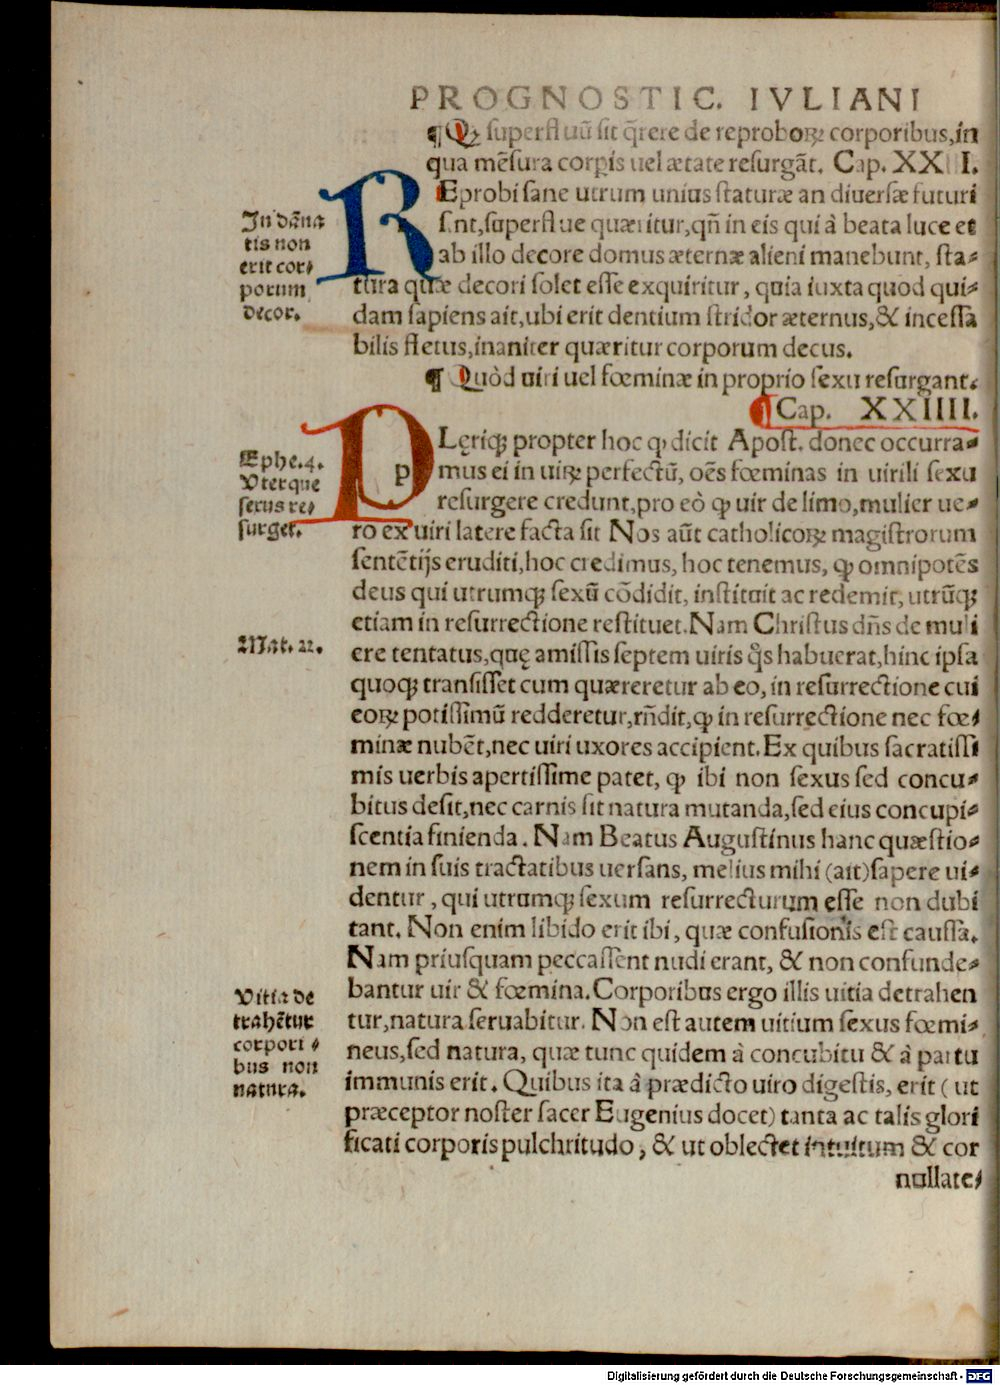 PROGNOSTIC. IVLIANI
¶ Qꝫ superfluũ sit q̃rere de reproboꝝ corporibus, in
qua mẽsura corpis uel ætate resurgãt. Cap. XXIII.
REprobi sane utrum unius staturæ an diuersæ futuri
sint, superflue quæritur, qñ in eis qui à beata luce et
ab illo decore domus æternæ alieni manebunt, sta⸗
tura quæ decori solet esse exquiritur, quia iuxta quod qui⸗
dam sapiens ait, ubi erit dentium stridor æternus, & incessa
bilis fletus, inaniter quæritur corporum decus.
In dãna
tis non
erit cor⸗
porum
decor.
¶ Quòd uiri uel fœminæ in proprio sexu resurgant.
¶ Cap. XXIIII.
PLęriqꝫ propter hoc ꝙ dicit Apost. donec occurra⸗
mus ei in uiꝝ perfectũ, oẽs fœminas in uirili sexu
resurgere credunt, pro eò ꝙ uir de limo, mulier ue⸗
ro ex uiri latere facta sit Nos aũt catholicoꝝ magistrorum
sentẽtijs eruditi, hoc credimus, hoc tenemus, ꝙ omnipotẽs
deus qui utrumqꝫ sexũ cõdidit, instituit ac redemit, utrũqꝫ
etiam in resurrectione restituet. Nam Christus dñs de muli
ere tentatus, quę amissis septem uiris q̃s habuerat, hinc ipsa
quoqꝫ transisset cum quæreretur ab eo, in resurrectione cui
eoꝝ potissimũ redderetur, rñdit, ꝙ in resurrectione nec fœ⸗
minæ nubẽt, nec uiri uxores accipient. Ex quibus sacratissi
mis uerbis apertissime patet, ꝙ ibi non sexus sed concu⸗
bitus desit, nec carnis sit natura mutanda, sed eius concupi⸗
scentia finienda. Nam Beatus Augustinus hanc quæstio⸗
nem in suis tractatibus uersans, melius mihi (ait) sapere ui⸗
dentur, qui utrumqꝫ sexum resurrecturum esse non dubi
tant. Non enim libido erit ibi, quæ confusionis est caussa.
Nam priusquam peccassent nudi erant, & non confunde⸗
bantur uir & fœmina. Corporibus ergo illis uitia detrahen
tur, natura seruabitur. Non est autem uitium sexus fœmi⸗
neus, sed natura, quæ tunc quidem à concubitu & à partu
immunis erit. Quibus ita à prædicto uiro digestis, erit (ut
præceptor noster sacer Eugenius docet) tanta ac talis glori
ficati corporis pulchritudo, & ut oblectet intuitum & cor
nullate⸗
Ephe. 4.
Vterque
sexus re⸗
surget.
Mat. 22.
Vitia de
trahẽtur
corpori⸗
bus non
natura.
Digitalisierung gefördert durch die Deutsche Forschungsgemeinschaft - DFG